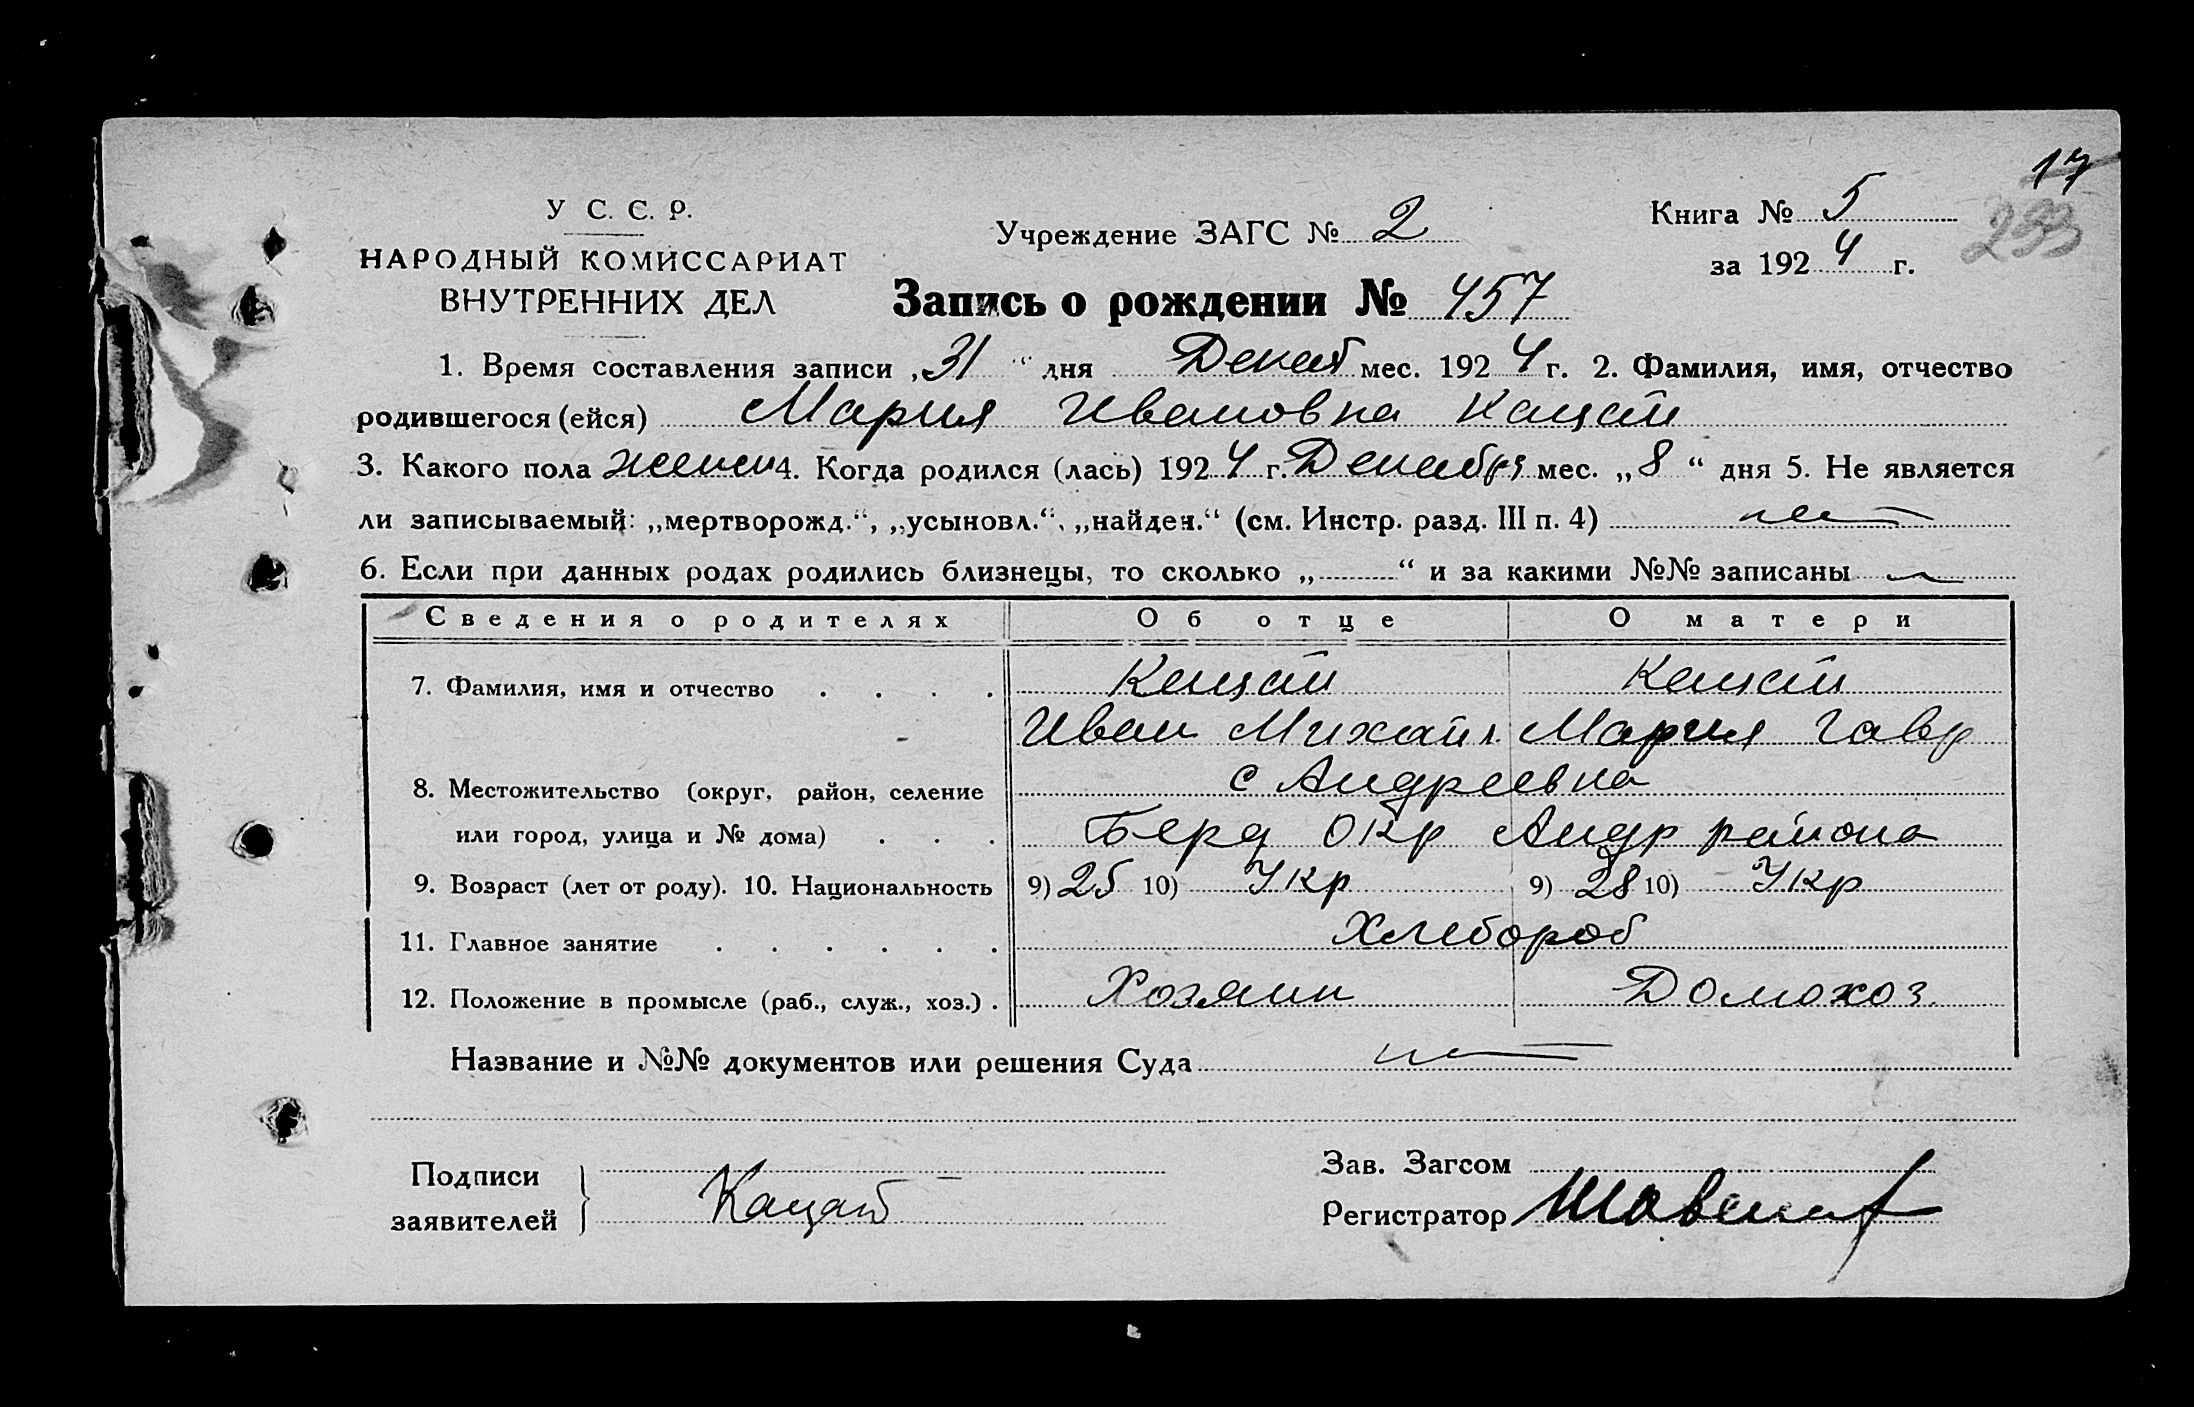 17
У С. С. Р.
Учреждение ЗАГС № 2
Книга № 5
253
НАРОДНЫЙ КОМИССАРИАТ
за 1924 г.
ВНУТРЕННИХ ДЕЛ
Запись о рождении № 457
1. Время составления записи „31“ дня Декаб мес. 1924 г. 2. Фамилия, имя, отчество
родившегося (ейся) Мария Ивановна Кацай
3. Какого пола женск 4. Когда родился (лась) 1924 г. Декабря мес. „8“ дня 5. Не является
ли записываемый: „мертворожд.“, „усыновл.“, „найден.“ (см. Инстр. разд. III п. 4) нет
6. Если при данных родах родились близнецы, то сколько „ “ и за какими №№ записаны
Сведения о родителях Об отце О матери
7. Фамилия, имя и отчество . . . . Кацай Кацай
Иван Михайл. Мария Гавр
8. Местожительство (округ, район, селение с Андреевка
или город, улица и № дома) . . . Берд окр Андр района
9. Возраст (лет от роду). 10. Национальность 9) 25 10) Укр 9) 28 10) Укр
11. Главное занятие . . . . . . Хлебороб
12. Положение в промысле (раб., служ., хоз.) . Хозяин Домохоз.
Название и №№ документов или решения Суда нет
Подписи
заявителей Кацай
Зав. Загсом
Регистратор